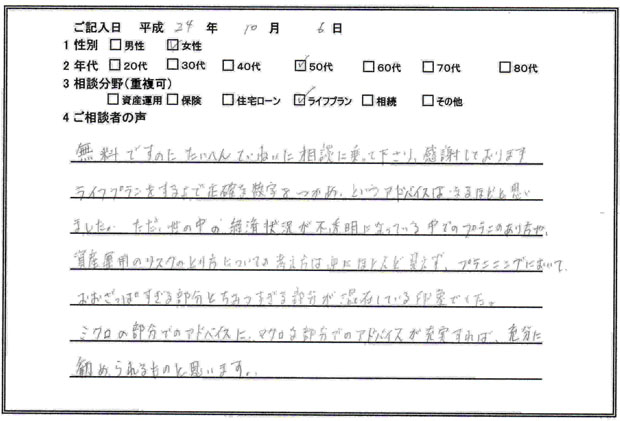 ご記入日 平成 24 年 10 月 6 日
1 性別 □男性 ☑女性
2 年代 □20代 □30代 □40代 ☑50代 □60代 □70代 □80代
3 相談分野(重複可)
□資産運用 □保険 □住宅ローン ☑ライフプラン □相続 □その他
4 ご相談者の声
無料ですのに たいへんていねいに相談に乗って下さり、感謝しております
ライフプランをする上で正確な数字をつかめ、というアドバイスは、なるほどと思い
ました。ただ、世の中の経済状況が不透明になっている中でのプランのあり方や、
資産運用のリスクのとり方についての考え方は逆にほとんど見えず、プランニングにおいて、
おおざっぱすぎる部分と すぎる部分が混在している印象でした。
ミクロの部分でのアドバイスに、マクロな部分でのアドバイスが充実すれば、充分に
勧められるものと思います。